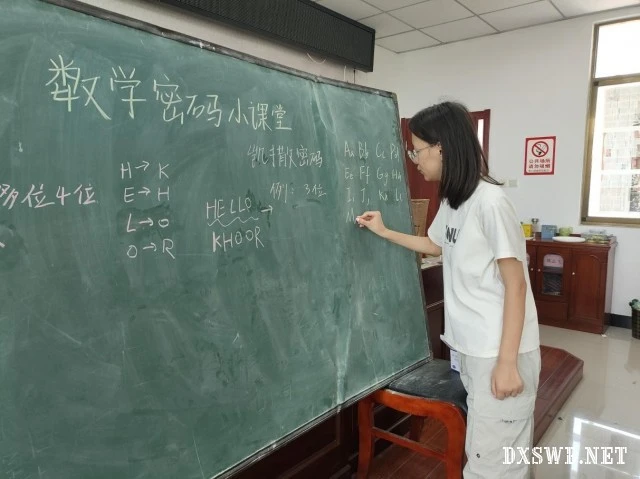 数学密码小课堂
凯撒密码
例：3位
阶位4位
H→K
E→H
L→O
O→R
HELLO→
KHOOR
Aa Bb Cc Dd
Ee Ff Gg Hh
Ii Jj Kk Ll
公共场所
请勿吸烟
DXSWB.NET